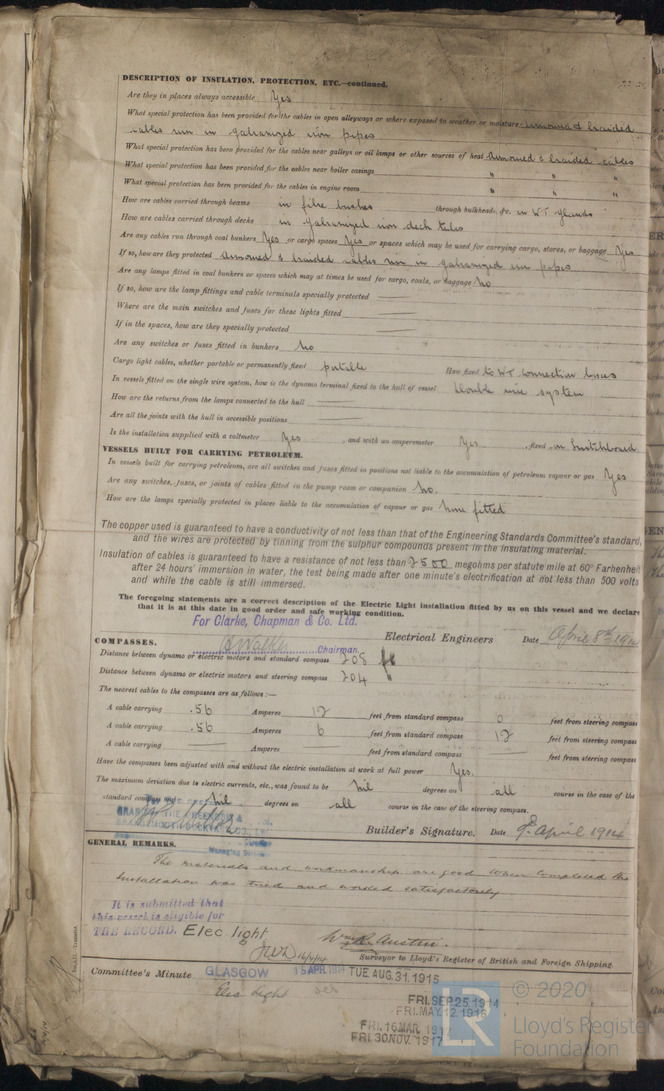 DESCRIPTION OF INSULATION, PROTECTION, ETC.—continued.
Are they in places always accessible Yes
What special protection has been provided for the cables in open alleyways or where exposed to weather or moisture Armoured & braided
cables run in galvanized iron pipes
What special protection has been provided for the cables near galleys or oil lamps or other sources of heat Armoured & braided cables
What special protection has been provided for the cables near boiler casings " " "
What special protection has been provided for the cables in engine room " " "
How are cables carried through beams in fibre bushes through bulkheads, &c. in WT glands
How are cables carried through decks in galvanized iron deck tubes
Are any cables run through coal bunkers Yes or cargo spaces Yes or spaces which may be used for carrying cargo, stores, or baggage Yes
If so, how are they protected Armoured & braided cables run in galvanized iron pipes
Are any lamps fitted in coal bunkers or spaces which may at times be used for cargo, coals, or baggage No
If so, how are the lamp fittings and cable terminals specially protected
Where are the main switches and fuses for these lights fitted
If in the spaces, how are they specially protected
Are any switches or fuses fitted in bunkers No
Cargo light cables, whether portable or permanently fixed portable How fixed to WT connection boxes
In vessels fitted on the single wire system, how is the dynamo terminal fixed to the hull of vessel Double wire system
How are the returns from the lamps connected to the hull
Are all the joints with the hull in accessible positions
Is the installation supplied with a voltmeter Yes , and with an amperemeter Yes , fixed on Switchboard
VESSELS BUILT FOR CARRYING PETROLEUM.
In vessels built for carrying petroleum, are all switches and fuses fitted in positions not liable to the accumulation of petroleum vapour or gas Yes
Are any switches, fuses, or joints of cables fitted in the pump room or companion No.
How are the lamps specially protected in places liable to the accumulation of vapour or gas None fitted
The copper used is guaranteed to have a conductivity of not less than that of the Engineering Standards Committee's standard,
and the wires are protected by tinning from the sulphur compounds present in the insulating material.
Insulation of cables is guaranteed to have a resistance of not less than 2500 megohms per statute mile at 60° Farhenheit
after 24 hours' immersion in water, the test being made after one minute's electrification at not less than 500 volts
and while the cable is still immersed.
The foregoing statements are a correct description of the Electric Light installation fitted by us on this vessel and we declare
that it is at this date in good order and safe working condition.
For Clarke, Chapman & Co. Ltd.
Chairman. Electrical Engineers Date April 8th 1914
COMPASSES.
Distance between dynamo or electric motors and standard compass 208 ft
Distance between dynamo or electric motors and steering compass 204
The nearest cables to the compasses are as follows:—
A cable carrying .56 Amperes 12 feet from standard compass 0 feet from steering compass
A cable carrying .56 Amperes 6 feet from standard compass 12 feet from steering compass
A cable carrying Amperes feet from standard compass feet from steering compass
Have the compasses been adjusted with and without the electric installation at work at full power Yes.
The maximum deviation due to electric currents, etc., was found to be Nil degrees on all course in the case of the
standard compass Nil degrees on all course in the case of the steering compass.
Builder's Signature. Date 9th April 1914
GENERAL REMARKS.
The materials and workmanship are good When completed the
Installation was tried and worked satisfactorily
It is submitted that
this vessel is eligible for
THE RECORD. Elec light
16/4/14 Wm R. Austin.
Surveyor to Lloyd's Register of British and Foreign Shipping.
Committee's Minute GLASGOW 15 APR. 1914 TUE. AUG. 31. 1915
Elec Light
FRI. SEP. 25 1914
FRI. MAY. 12. 1916
FRI. 16 MAR. 1917
FRI. 30 NOV. 1917
LR
© 2020
Lloyd's Register
Foundation